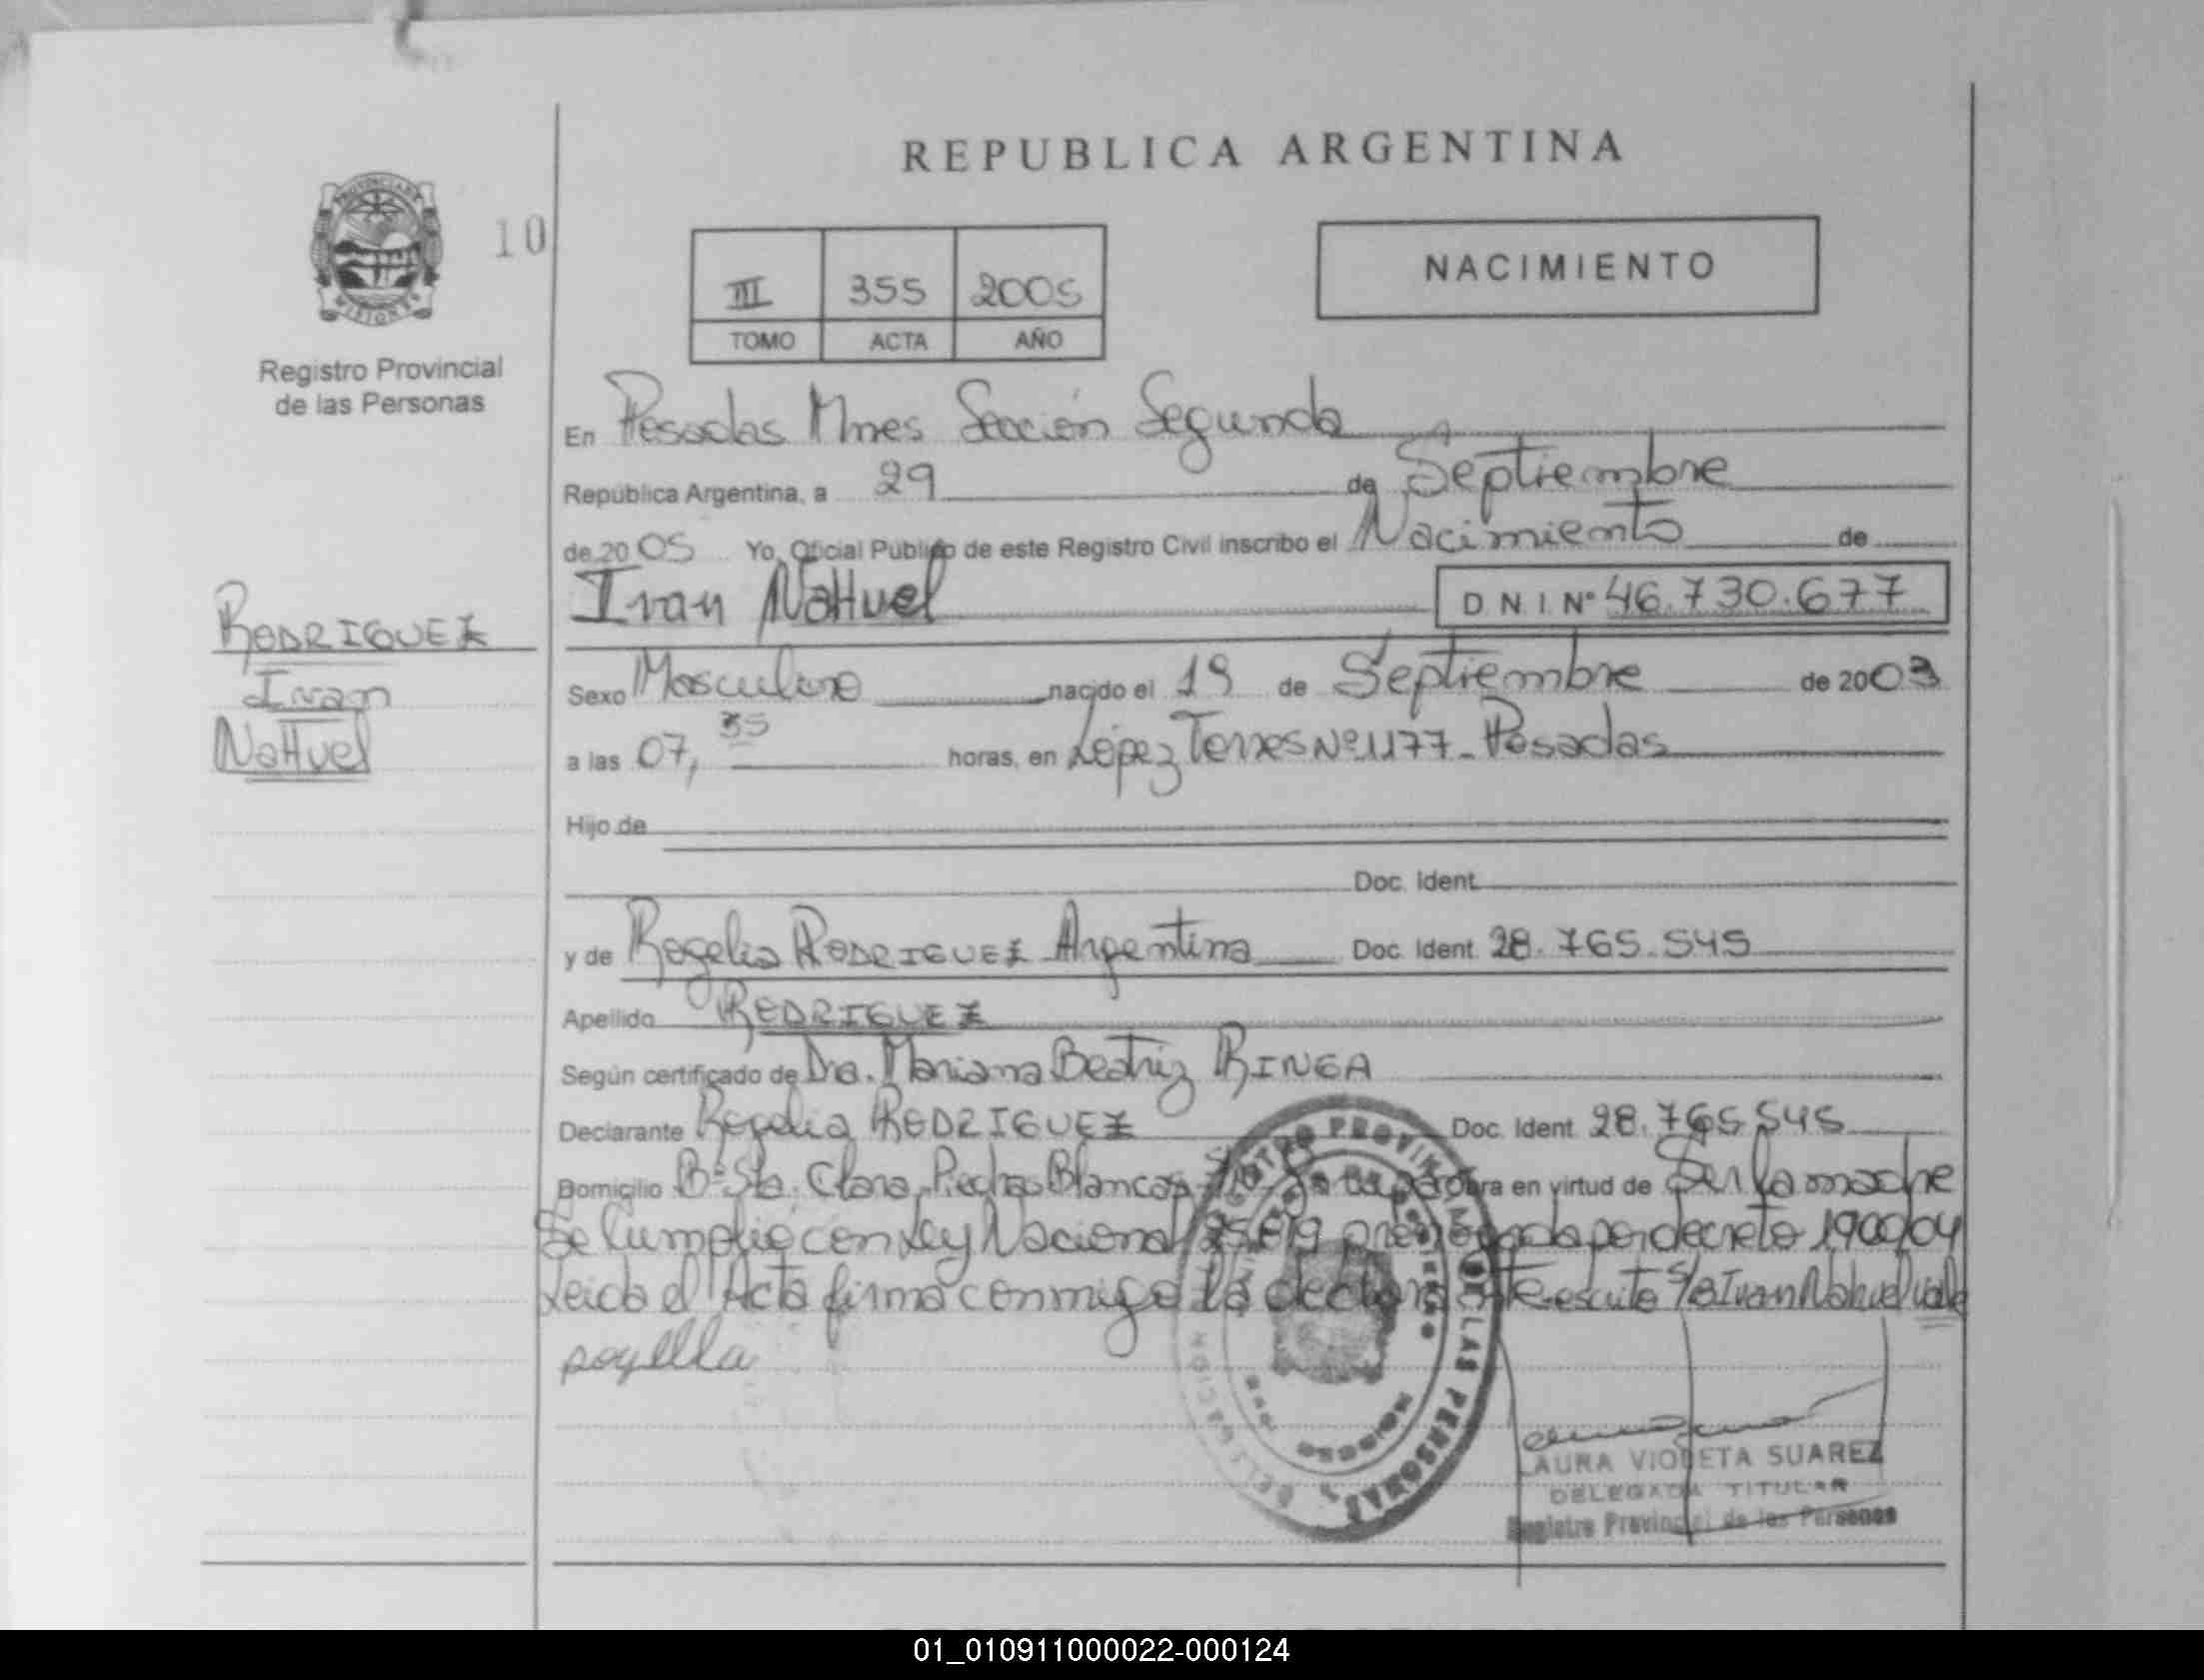 REPUBLICA ARGENTINA
PROVINCIA DE
MISIONES
10
Registro Provincial
de las Personas
III 355 2005
TOMO ACTA AÑO
NACIMIENTO
En Posadas Mnes Sección Segunda
República Argentina, a 29 de Septiembre
de 2005 Yo, Oficial Público de este Registro Civil inscribo el Nacimiento de
Ivan NaHuel D N I Nº 46.730.677
RODRIGUEZ
Ivan
NaHuel
Sexo Masculino nacido el 19 de Septiembre de 2003
a las 07,35 horas, en López Torres Nº 1177 - Posadas
Hijo de
Doc. Ident.
y de Rogelia RODRIGUEZ Argentina Doc. Ident. 28.765.545
Apellido RODRIGUEZ
Según certificado de Dra. Mariana Beatriz RINGA
Declarante Rogelia RODRIGUEZ Doc. Ident. 28.765.545
Domicilio Bº Sta. Clara, Piedras Blancas obra en virtud de Ser la madre
Se Cumplió con Ley Nacional prorrogada por decreto 1900/04
Leida el Acta firma conmigo la declarante escrito S/a Ivan Nahuel vale
REGISTRO PROVINCIAL DE LAS PERSONAS
LAURA VIOLETA SUAREZ
DELEGADA TITULAR
Registro Provincial de las Personas
01_010911000022-000124